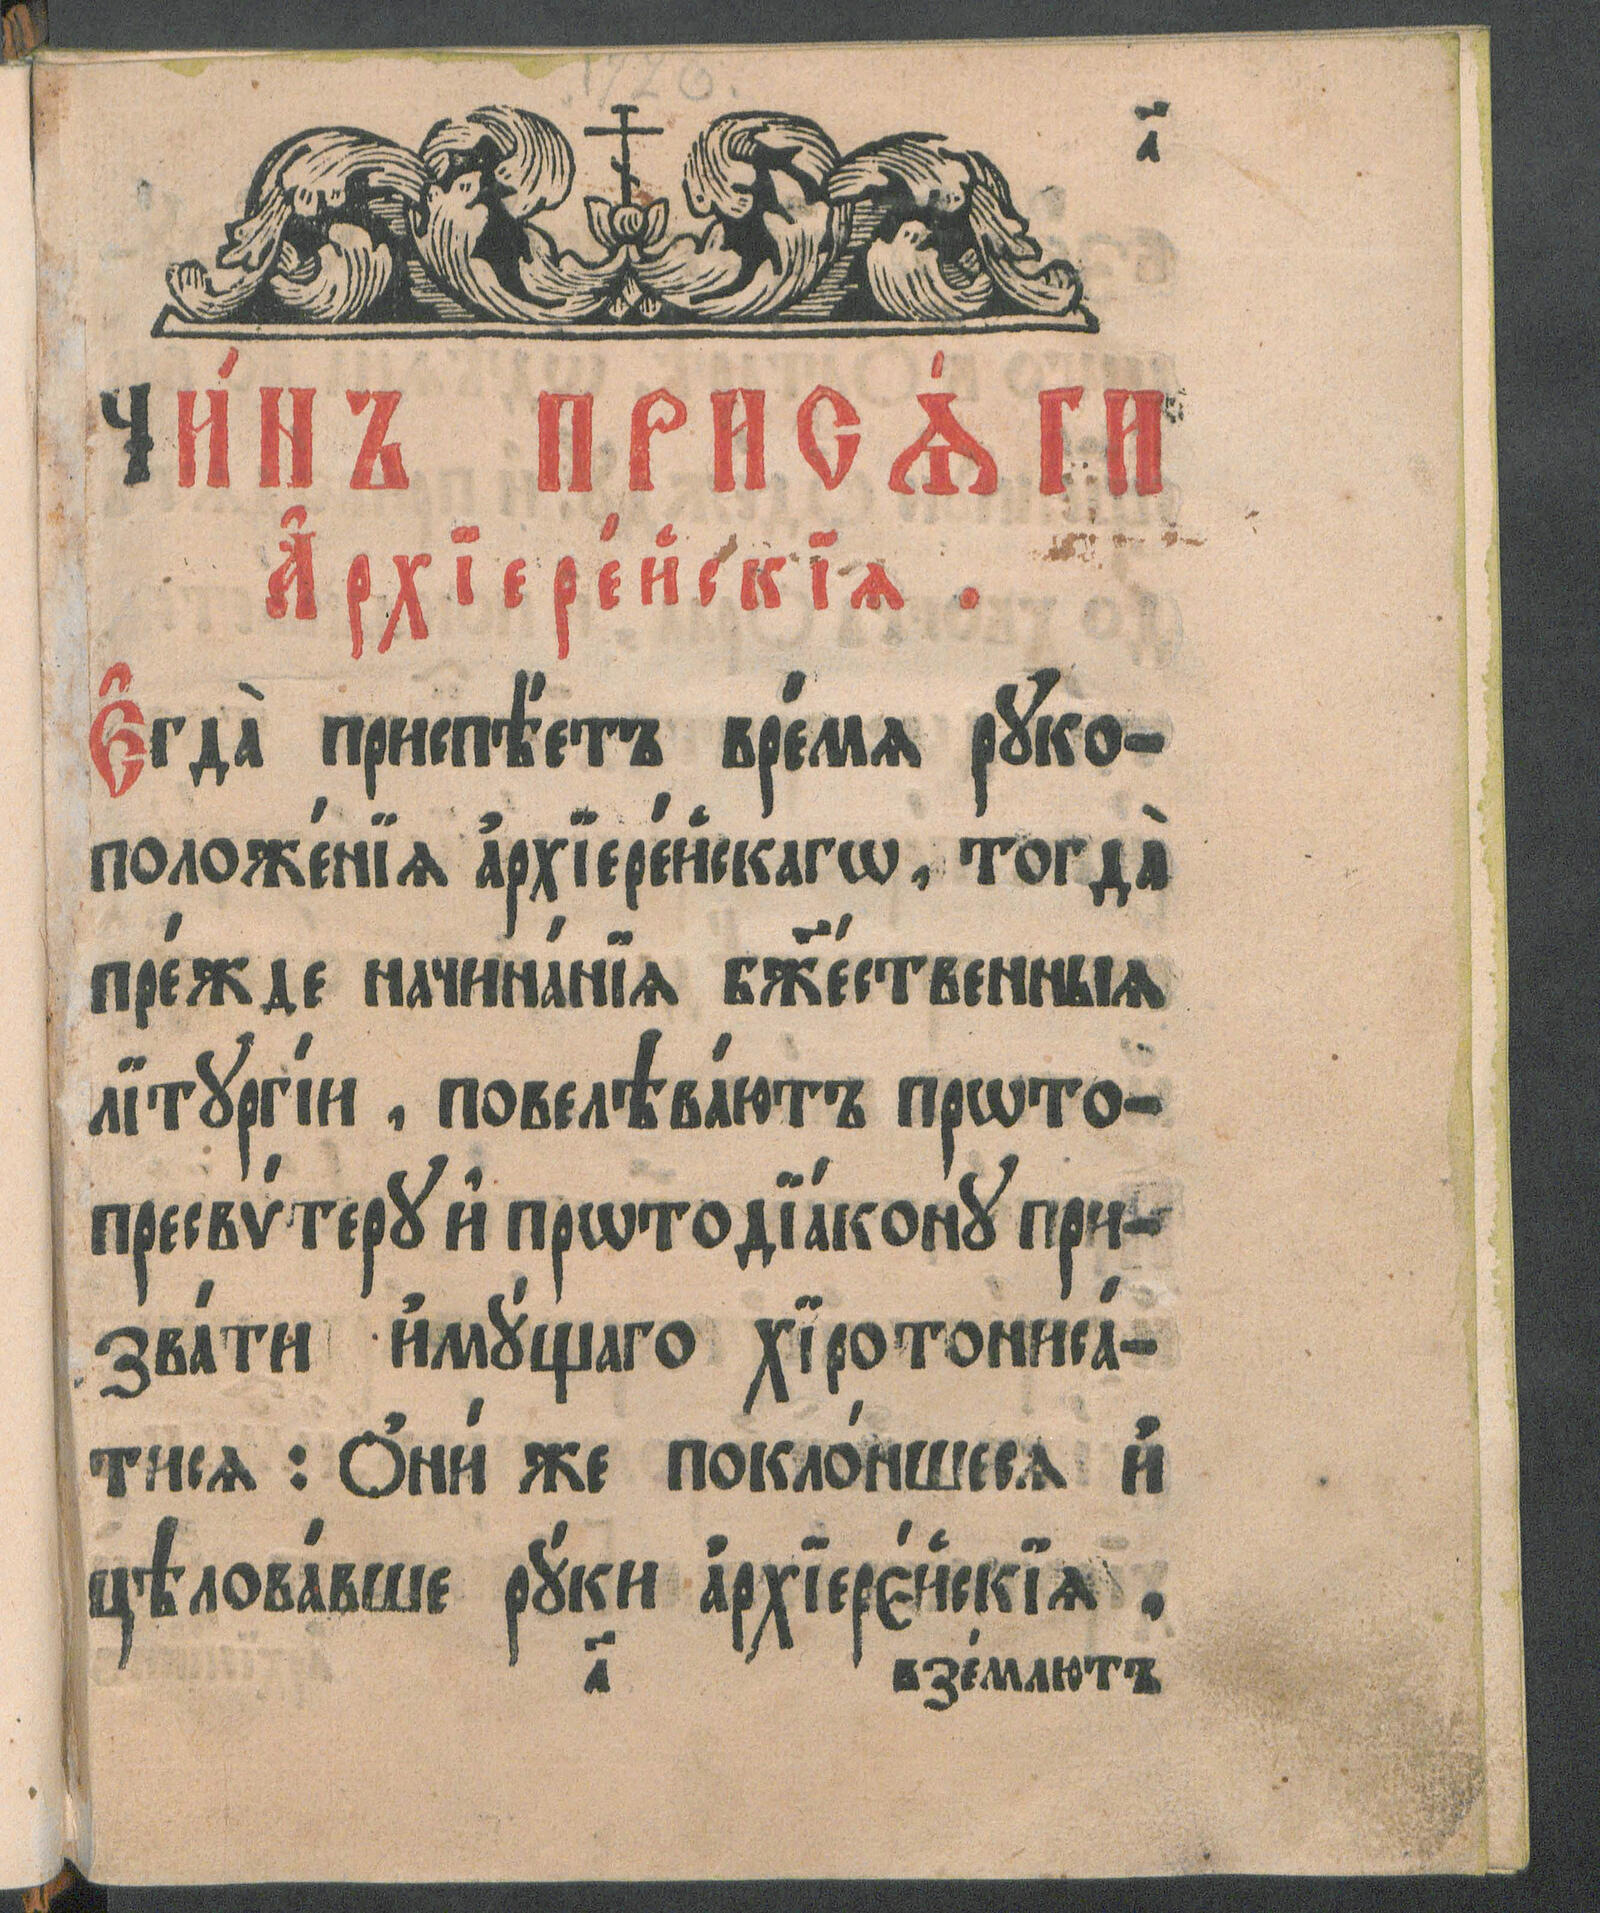 1720.
а҃
ЧИ́НЪ ПРИСѦ́ГИ
А҆рхїере́йскїѧ.
Є҆гда̀ приспѣ́етъ вре́мѧ рꙋко-
положе́нїѧ а҆рхїере́йскагѡ, тогда̀
пре́жде начина́нїѧ бж҃е́ственныѧ
лїтꙋргі́и, повелѣва́ютъ прѡто-
пресвѵ́терꙋ и҆ прѡтодїа́конꙋ при-
зва́ти и҆мꙋ́щаго хїротониса́-
тисѧ: О҆ни́ же покло́ншесѧ и҆
цѣлова́вше рꙋ́ки а҆рхїерє́йскїѧ,
а҃
взе́млютъ